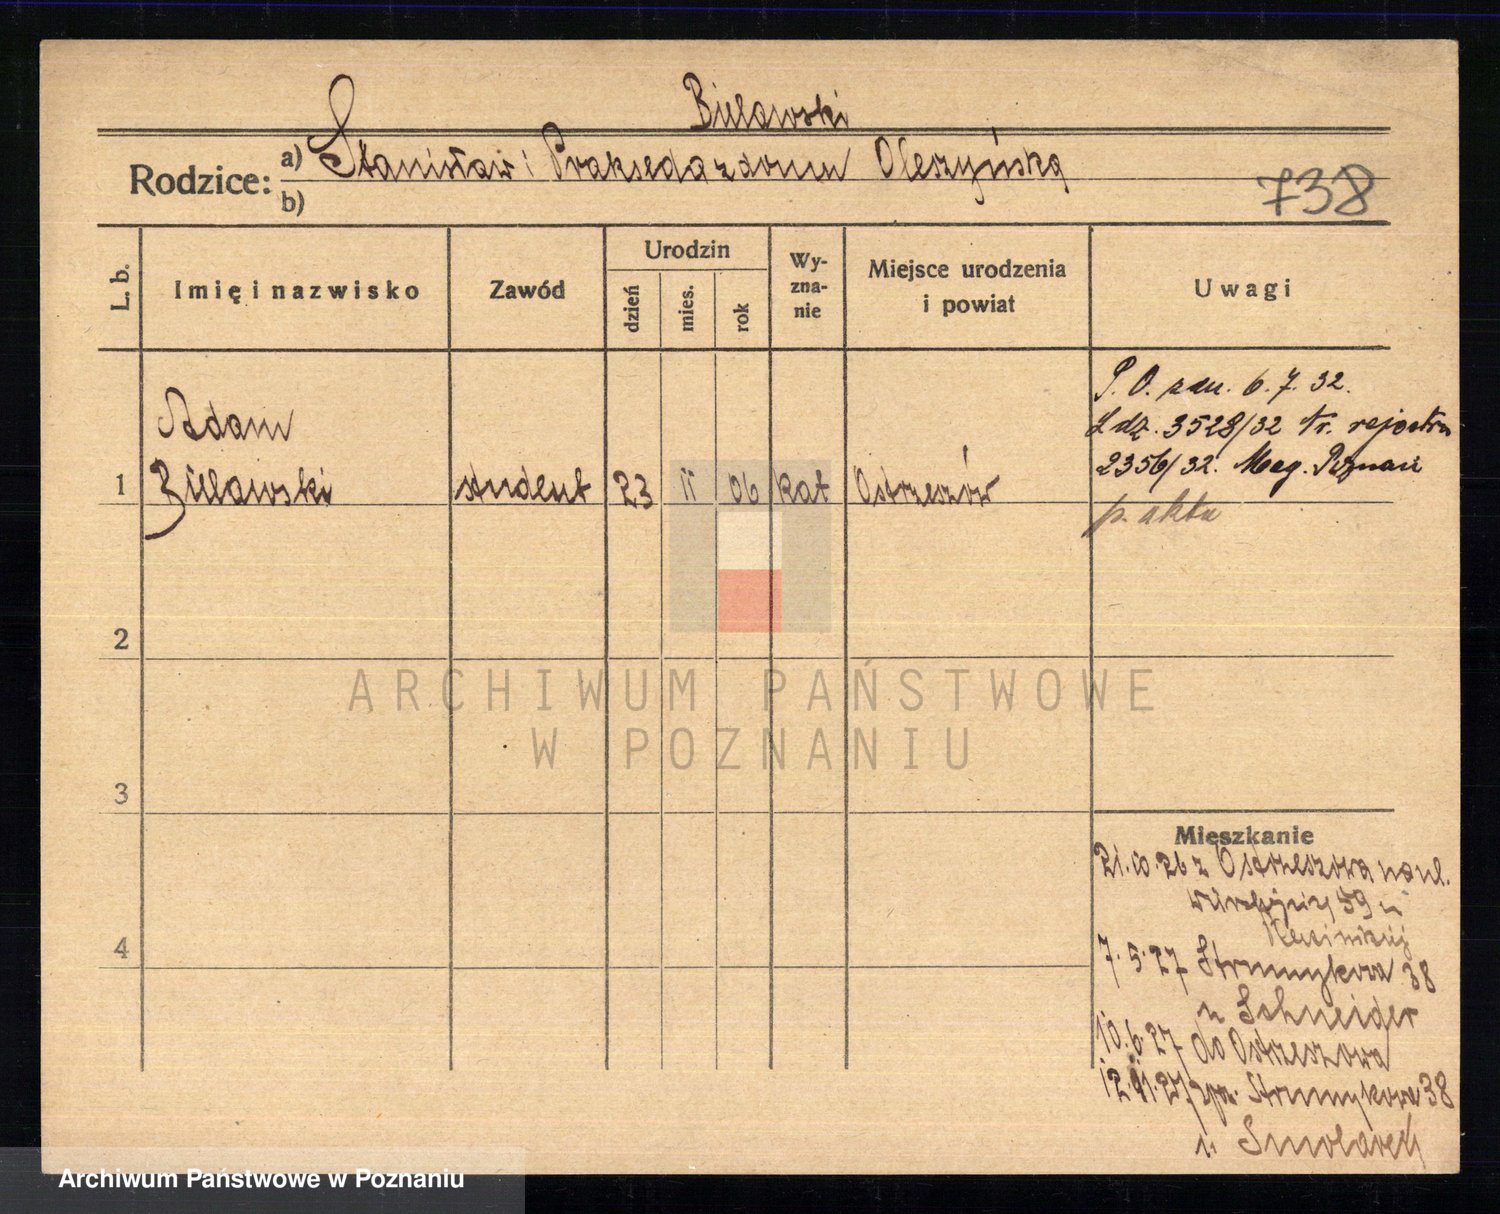 Bielawski
Rodzice: a) Stanisław i Prakseda z domu Oleszyńska
b)
738
L. b.
Imię i nazwisko
Zawód
Urodzin
dzień
mies.
rok
Wy-
zna-
nie
Miejsce urodzenia
i powiat
Uwagi
P. O. zaw. 6. 7. 32.
Ldz. 3528/32 Nr. rejestru
2356/32. Mag. Poznań
p. akta
Adam
1 Bielawski student 23 II 06 kat Ostrzeszów
2
3
4
ARCHIWUM PAŃSTWOWE
W POZNANIU
Mieszkanie
21.10.26 z Ostrzeszowa na ul.
59 u
7.5.27 Strumykowa 38
u Schneider
10.6.27 do Ostrzeszowa
12.11.27 Strumykowa 38
u. Smolarek
Archiwum Państwowe w Poznaniu